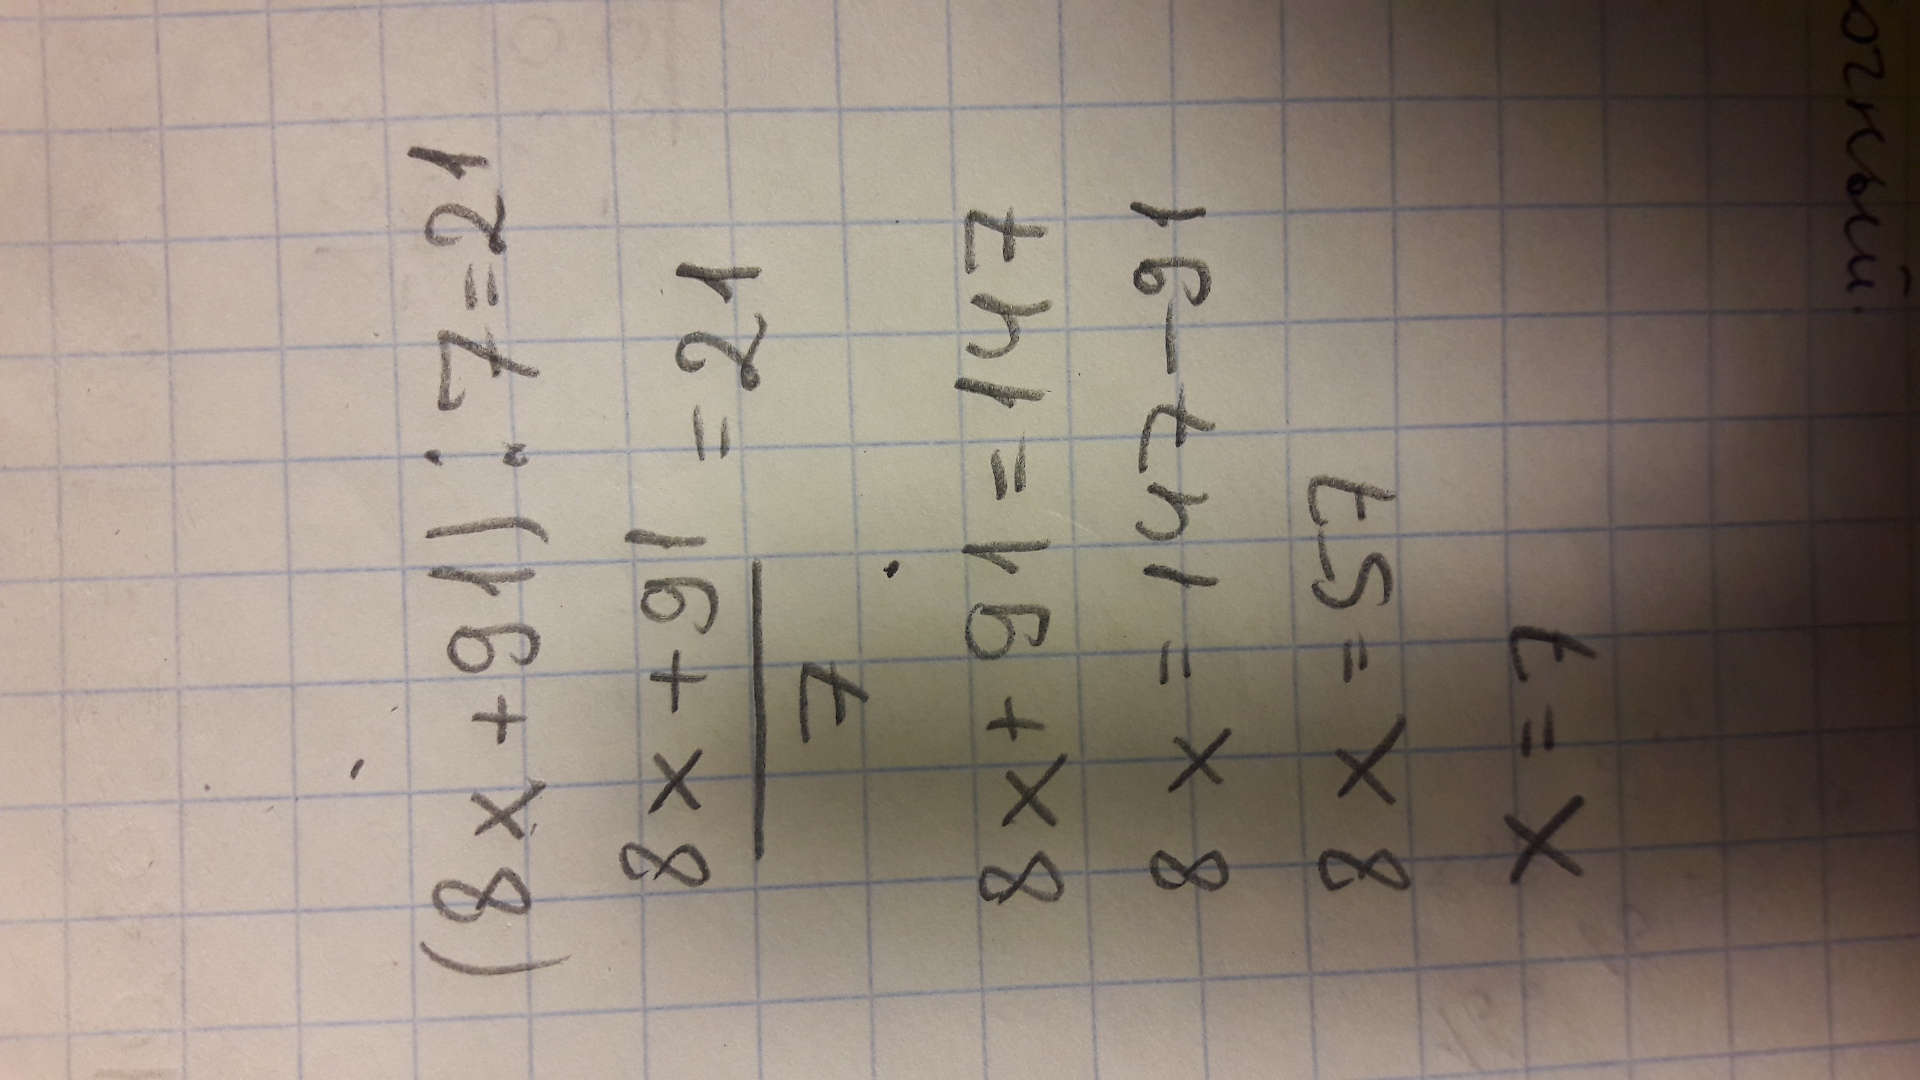 (8x+91):7=21
8x+91 =21
7
8x+91=147
8x=147-91
8x=57
x=7